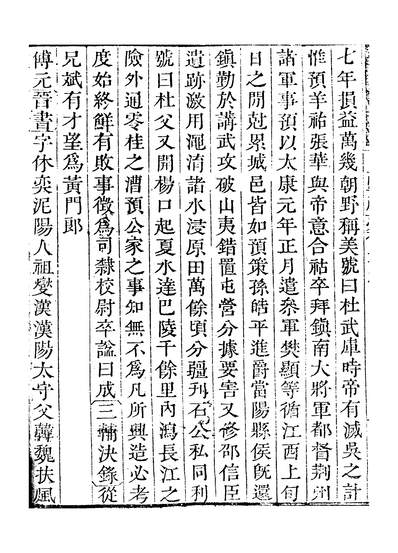 七年損益萬幾朝野稱美號曰杜武庫時帝有滅吳之計
惟預羊祜張華與帝意合祜卒拜鎮南大將軍都督荆州
諸軍事預以太康元年正月遣叅軍樊顯等循江西上旬
日之閒尅累城邑皆如預策孫皓平進爵當陽縣侯旣還
鎮勤於講武攻破山夷錯置屯營分據要害又修邵信臣
遺跡激用滍淯諸水浸原田萬餘頃分疆刋石公私同利
號曰杜父又開楊口起夏水達巴陵千餘里內瀉長江之
險外通零桂之漕預公家之事知無不爲凡所興造必考
度始終鮮有敗事徵爲司隸校尉卒諡曰成三輔決錄從
兄斌有才望爲黃門郎
傅元晉書字休奕泥陽人祖燮漢漢陽太守父幹魏扶風